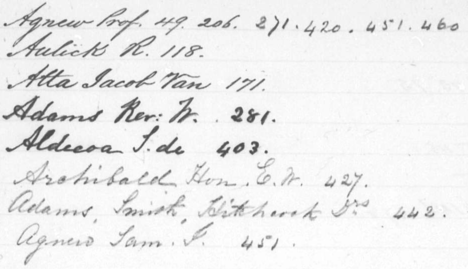 Agnew Prof. 49. 206. 271. 420. 451. 460
Aulick R. 118.
Atta Jacob Van 171.
Adams Rev: W. 281.
Aldecoa S. de 403.
Archibald Hon. E. W. 427.
Adams, Smith, Hitchcock Drs 442.
Agnew Sam. J. 451.